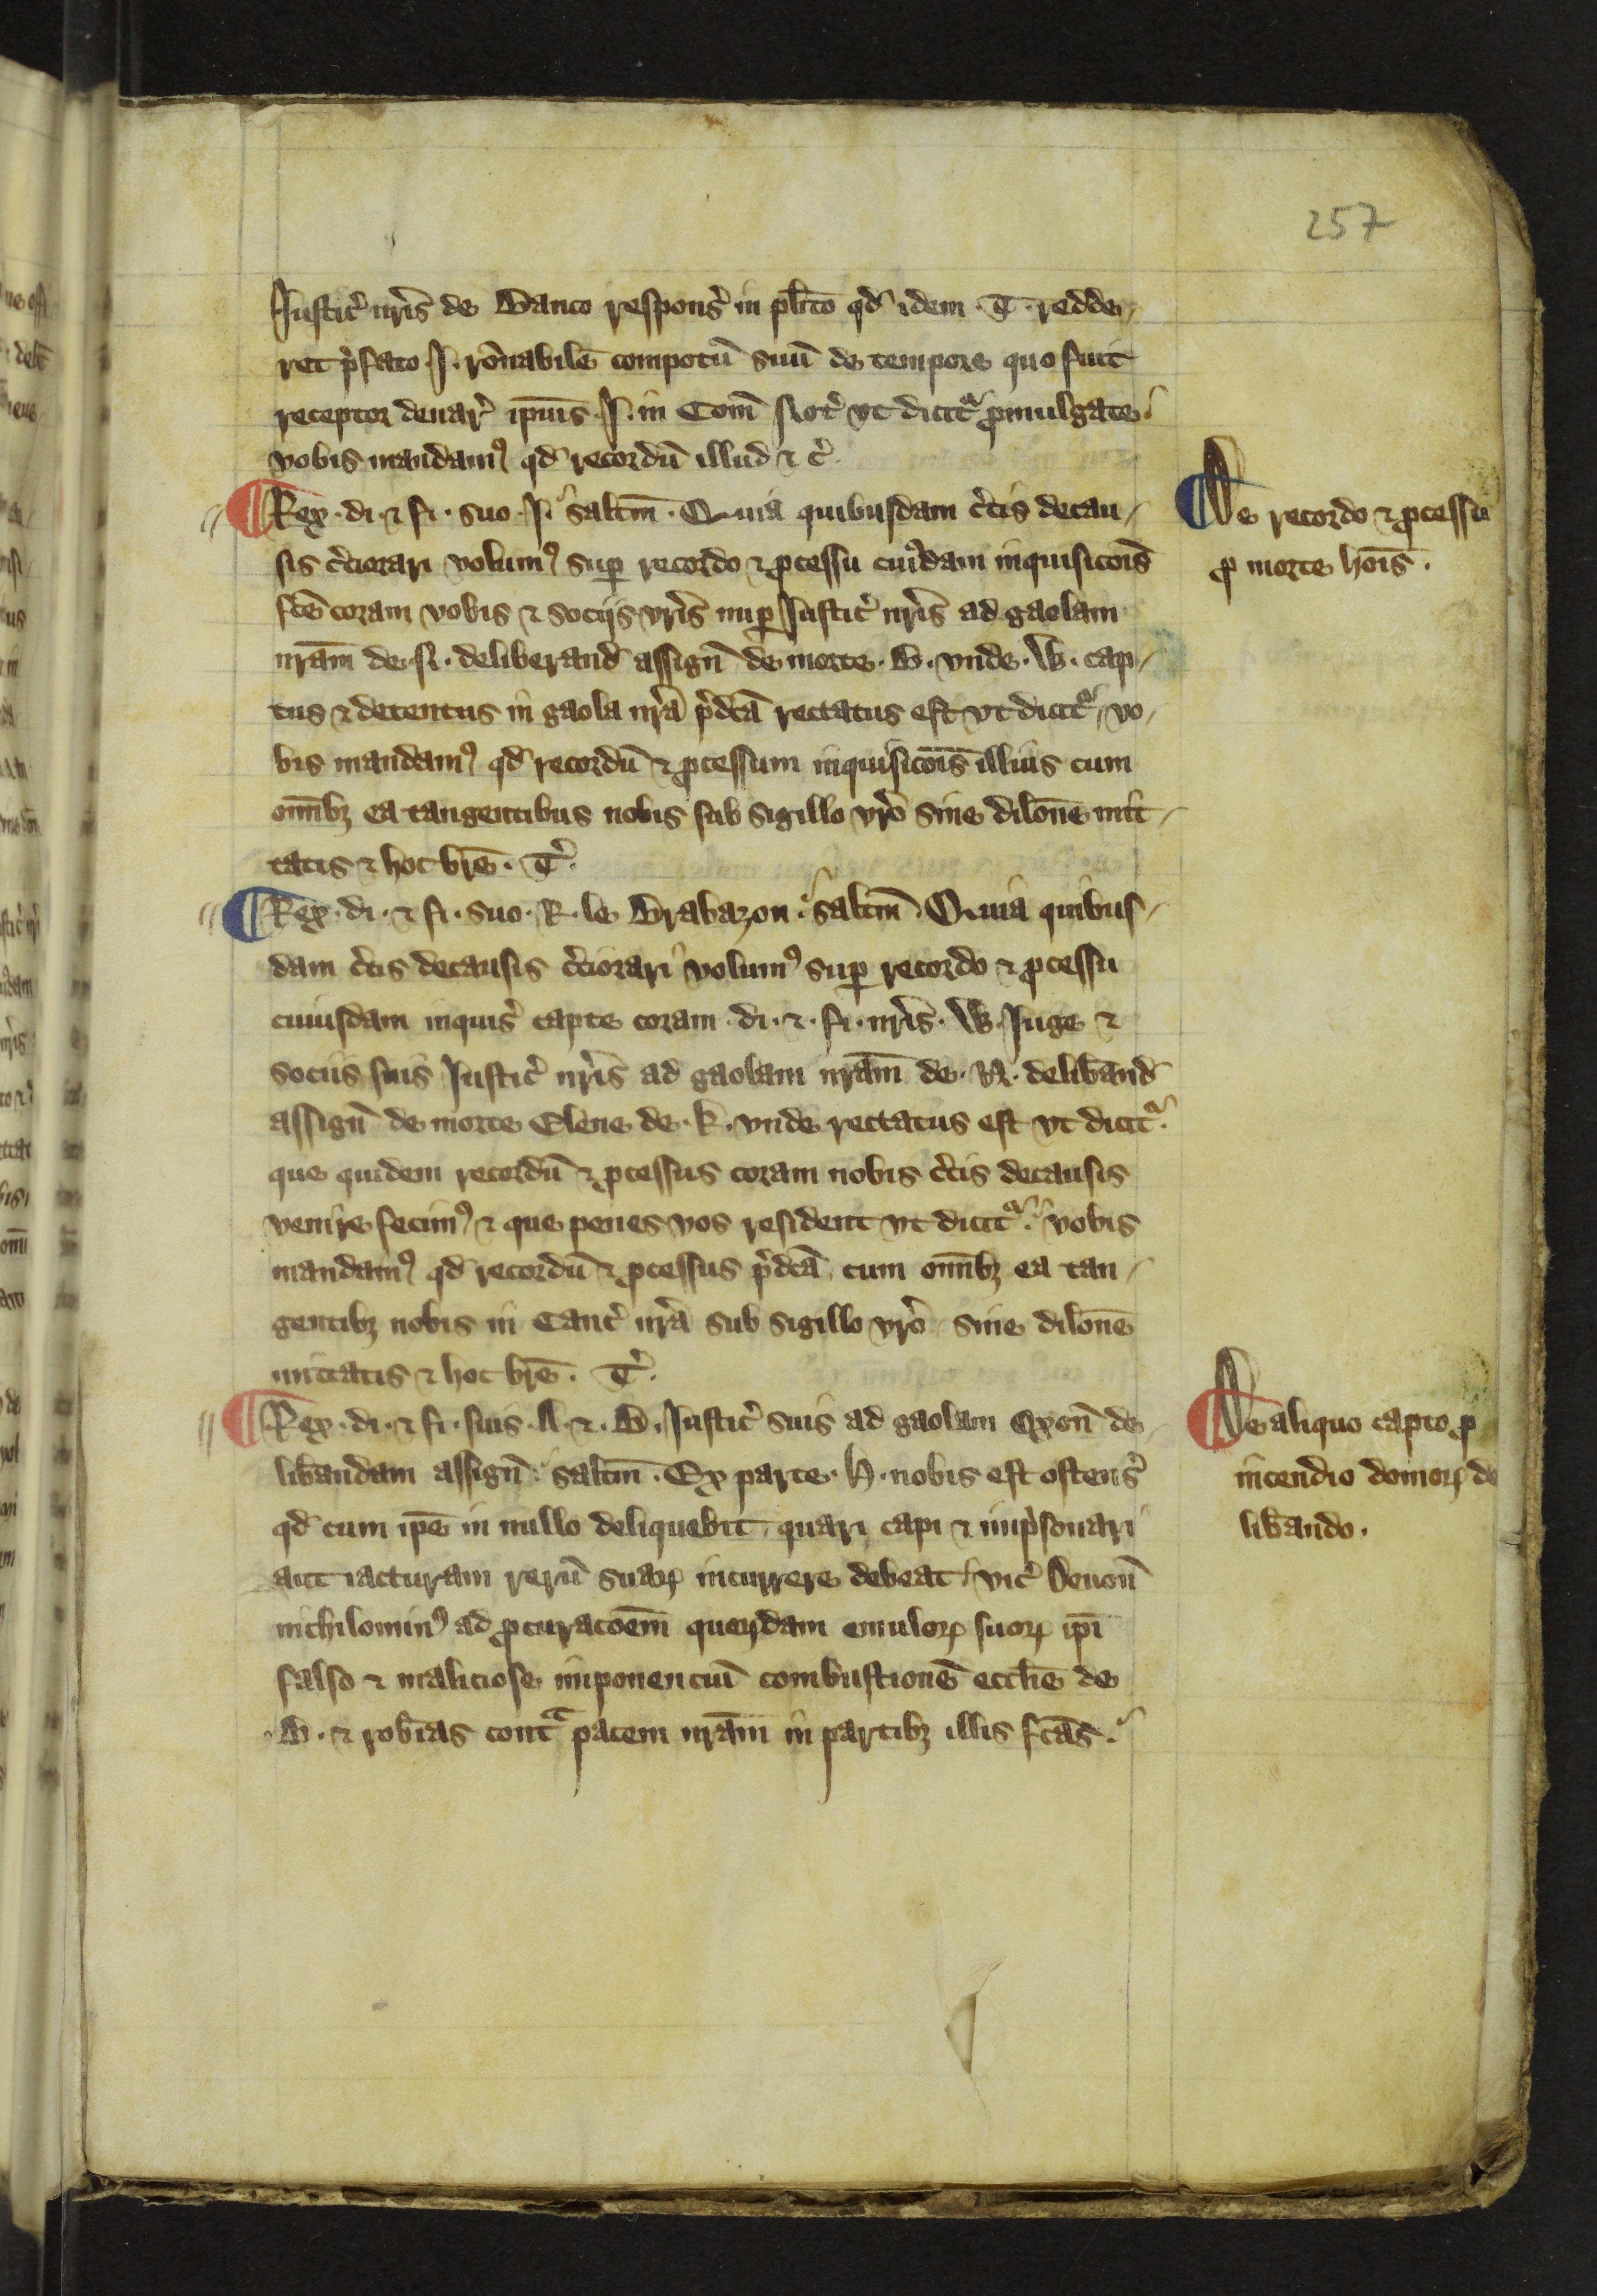 257
Iusticͬ nr̄is de Banco responsͬ in pl̄ito qd̄ idem .T. redde-
ret p̄fato .I. ro̅nabile̅ compotu̅ suu̅ de tempore quo fuit
receptor denarͬ ip̅ius .I. in Com̅ Norͭ vt dicitᷓ ꝓmulgate.
vobis mandamꝰ qd̄ recordu̅ illud ⁊ cͬ.
¶ Rex .di. ⁊ fi. suo .I. salt̅m. Quia quibusdam c̓tis decau-
sis c̓ciorari volumꝰ suꝑ recordo ⁊ ꝓcessu cui̓dam inquisico̅is
fc̅e coram vobis ⁊ sociis vr̄is nuꝑ Iusticͬ nr̄is ad gaolam
nr̄am de .N. deliberand̄ assign̅ de morte .B. vnde .W. cap-
tus ⁊ detentus in gaola nr̄a p̄dc̅a rectatus est vt dicitᷓ, vo-
bis mandamꝰ qd̄ recordu̅ ⁊ ꝓcessum inquisico̅is illius cum
om̅ibꝫ ea tangentibus nobis sub sigillo vr̄o sine dilo̅ne mit-
tatis ⁊ hoc br̄e. Tͬ.
¶ Rex .di. ⁊ fi. suo .R. le Brabazon. salt̅m. Quia quibus-
dam c̓tis decausis c̓ciorari volumꝰ suꝑ recordo ⁊ ꝓcessu
cuiusdam inquisͬ capte coram .di. ⁊. fi. nr̄is. W. Inge ⁊
sociis suis Iusticͬ nr̄is ad gaolam nr̄am de .N. delib̄and̄
assign̅ de morte Elene de .k. vnde rectatus est vt dicitᷓ.
que quidem recordu̅ ⁊ ꝓcessus coram nobis c̓tis decausis
venire fecimꝰ ⁊ que penes vos resident vt dicitᷓ. vobis
mandamꝰ qd̄ recordu̅ ⁊ ꝓcessus p̄dc̅a cum om̅ibꝫ ea tan-
gentibꝫ nobis in Cancͬ nr̄a sub sigillo vr̄o sine dilo̅ne
mittatis ⁊ hoc br̄e. Tͬ.
¶ Rex .di. ⁊ fi. suis .A. ⁊. B. Iusticͬ suis ad gaolam Oxon̅ de-
lib̄andam assign̅. salt̅m. Ex parte .H. nobis est ostensͬ
qd̄ cum ip̅e in nullo deliquebit quari capi ⁊ imp̓sonari
aut iacturam reru̅ suaꝝ incurrere debeat vicͬ Deuon̅
nichilominꝰ ad ꝓcuraco̅em queꝝdam emuloꝝ suoꝝ ip̅i
falso ⁊ maliciose imponenciu̅ combustione̅ eccli̅e de
.B. ⁊ rob̄ias contᷓ pacem nr̄am in partibꝫ illis fc̅as.
¶ De recordo ⁊ ꝓcessu
ꝓ morte ho̅is.
¶ De aliquo capto ꝓ
incendio domoꝝ de
lib̄ando.